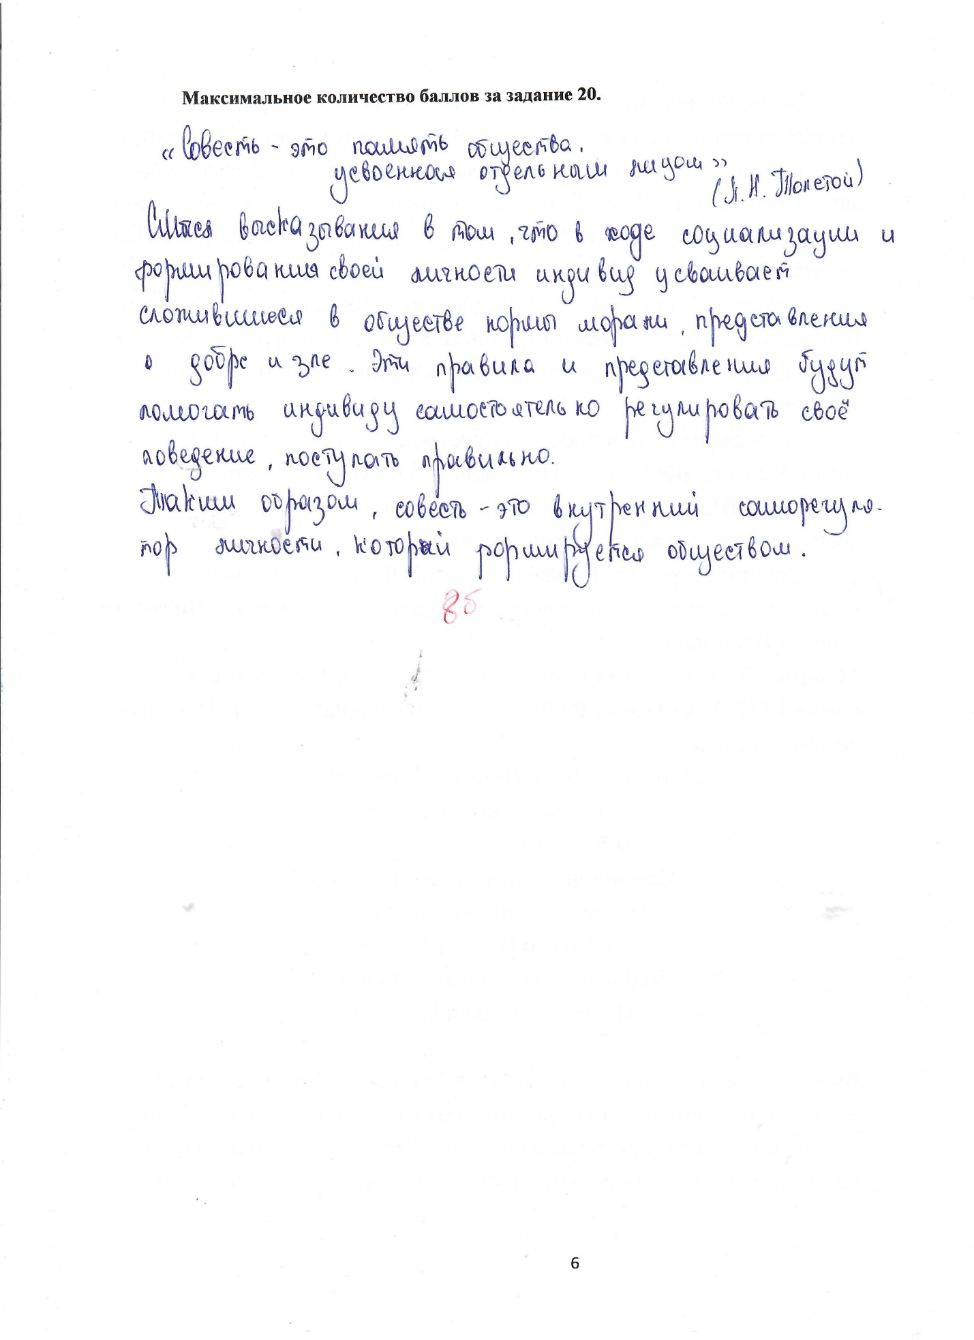 Максимальное количество баллов за задание 20.
"Совесть - это память общества,
усвоенная отдельным лицом"
(Л.Н. Толстой)
Смысл высказывания в том, что в ходе социализации и
формирования своей личности индивид усваивает
сложившиеся в обществе нормы морали, представления
о добре и зле. Эти правила и представления будут
помогать индивиду самостоятельно регулировать своё
поведение, поступать правильно.
Таким образом, совесть - это внутренний саморегуля-
тор личности, который формируется обществом.
8б
6